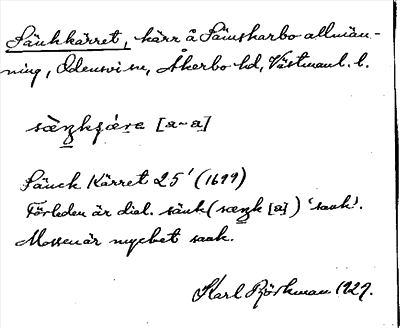 Sänkkärret, kärr å Sämsharbo allmän-
ning, Odensvi sn, Åkerbo hd, Västmanl. l.
sæ̀ŋkɕǽre [a~a]
Sänck Kärret 25' (1699)
Förleden är dial. sänk (sæŋk [a]) 'sank'.
Mossen är mycket sank.
Karl Björkman 1929.